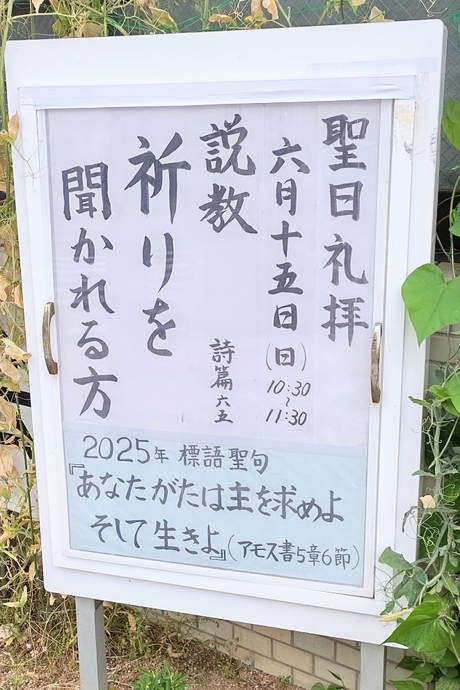 聖日礼拝
六月十五日(日)10:30~11:30
説教 詩篇六五
祈りを
聞かれる方
2025年 標語聖句
『あなたがたは主を求めよ
そして生きよ』(アモス書5章6節)